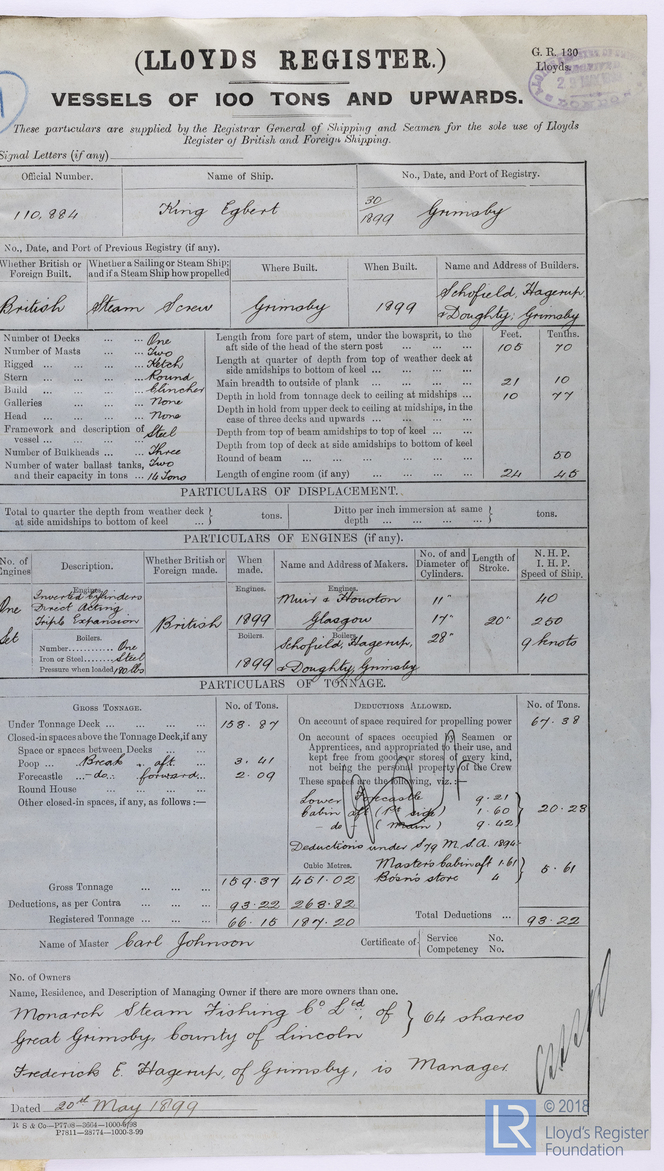 (LLOYDS REGISTER.)
G. R. 130
Lloyds.
VESSELS OF 100 TONS AND UPWARDS.
These particulars are supplied by the Registrar General of Shipping and Seamen for the sole use of Lloyds
Register of British and Foreign Shipping.
Signal Letters (if any)
Official Number. Name of Ship. No., Date, and Port of Registry.
110,884 King Egbert 30/1899 Grimsby
No., Date, and Port of Previous Registry (if any).
Whether British or Foreign Built. Whether a Sailing or Steam Ship; and if a Steam Ship how propelled Where Built. When Built. Name and Address of Builders.
British Steam Screw Grimsby 1899 Schofield, Hagerup, & Doughty; Grimsby
Number of Decks ... ... One
Number of Masts ... ... Two
Rigged ... ... ... Ketch
Stern ... ... ... Round
Build ... ... ... Clincher
Galleries ... ... None
Head ... ... ... None
Framework and description of vessel ... ... ... Steel
Number of Bulkheads ... ... Three
Number of water ballast tanks, and their capacity in tons ... Two 14 Tons
Feet. Tenths.
Length from fore part of stem, under the bowsprit, to the aft side of the head of the stern post ... ... ... 105 70
Length at quarter of depth from top of weather deck at side amidships to bottom of keel ... ... ... ...
Main breadth to outside of plank ... ... ... ... 21 10
Depth in hold from tonnage deck to ceiling at midships ... 10 77
Depth in hold from upper deck to ceiling at midships, in the case of three decks and upwards ... ... ... ...
Depth from top of beam amidships to top of keel ... ...
Depth from top of deck at side amidships to bottom of keel
Round of beam ... ... ... ... ... 50
Length of engine room (if any) ... ... ... ... 24 45
PARTICULARS OF DISPLACEMENT.
Total to quarter the depth from weather deck at side amidships to bottom of keel ... } tons. Ditto per inch immersion at same depth ... ... ... ... } tons.
PARTICULARS OF ENGINES (if any).
No. of Engines Description. Whether British or Foreign made. When made. Name and Address of Makers. No. of and Diameter of Cylinders. Length of Stroke. N. H. P. I. H. P. Speed of Ship.
Engines. Engines. Engines.
One Set
Inverted Cylinders
Direct Acting
Triple Expansion
British 1899 Muir & Houston Glasgow 11" 17" 28" 20" 40 250 9 knots
Boilers. Boilers. Boilers.
Number............ One
Iron or Steel......... Steel
Pressure when loaded 180 lbs
1899 Schofield, Hagerup, & Doughty; Grimsby
PARTICULARS OF TONNAGE.
GROSS TONNAGE. No. of Tons. DEDUCTIONS ALLOWED. No. of Tons.
Under Tonnage Deck ... ... ... ... 153.87
Closed-in spaces above the Tonnage Deck, if any
Space or spaces between Decks ... ...
Poop ... Break " aft ... 3.41
Forecastle ... do ... forward... 2.09
Round House ... ... ... ...
Other closed-in spaces, if any, as follows:—
On account of space required for propelling power 67.38
On account of spaces occupied by Seamen or Apprentices, and appropriated to their use, and kept free from goods or stores of every kind, not being the personal property of the Crew
These spaces are the following, viz.:—
Lower Forecastle 9.21
Cabin aft (Pt side) 1.60
do (main) 9.42
} 20.23
Deductions under S79 M.S.A. 1894
Master's Cabin aft 1.61
Bosn's store 4
} 5.61
Cubic Metres.
Gross Tonnage ... ... ... 159.37 451.02
Deductions, as per Contra ... ... ... 93.22 263.82
Registered Tonnage ... ... ... 66.15 187.20
Total Deductions ... 93.22
Name of Master Carl Johnson Certificate of { Service No. Competency No.
No. of Owners
Name, Residence, and Description of Managing Owner if there are more owners than one.
Monarch Steam Fishing Co Ltd, of } 64 shares
Great Grimsby, County of Lincoln
Frederick E. Hagerup, of Grimsby, is Manager
Dated 20th May 1899
LR
© 2018
Lloyd's Register
Foundation